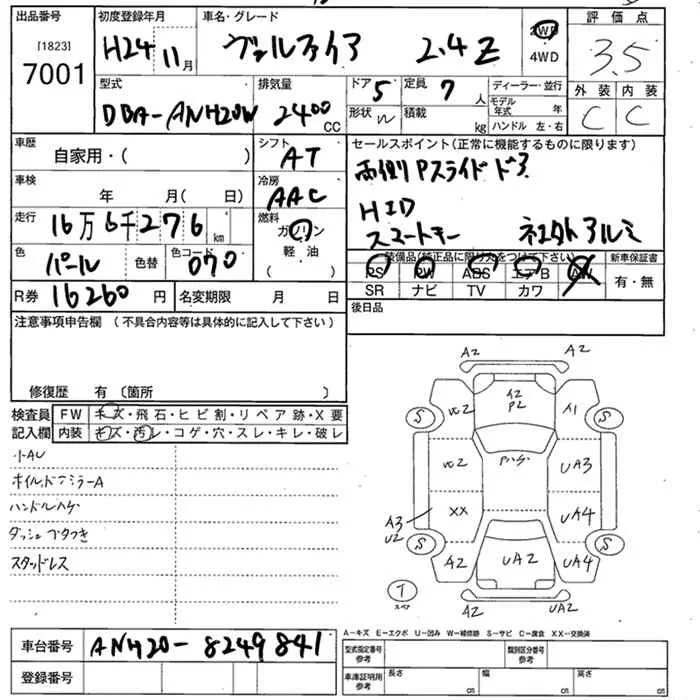 出品番号 初度登録年月 車名・グレード 評価点
[1823]
7001 H24 11月 ヴェルファイア 2.4Z 2WD 4WD 3.5
型式 排気量 ドア 5 定員 7 人 ディーラー・並行 外装 内装
DBA-ANH20W 2400 CC 形状 W 積載 kg モデル年式 年 ハンドル 左・右 C C
車歴 自家用・( ) シフト AT セールスポイント(正常に機能するものに限ります)
両側Pスライドドア
車検 年 月( 日) 冷房 AAC HID
走行 16万6千276 km 燃料 ガソリン 軽油 スマートキー 社外アルミ
色 パール 色替 色コード 070 装備品(純正品に限り丸をつけて下さい) 新車保証書
PS PW ABS エアB AW 有・無
R券 16260 円 名変期限 月 日 SR ナビ TV カワ
注意事項申告欄 (不具合内容等は具体的に記入して下さい) 後日品
修復歴 有 〔箇所 〕
検査員記入欄 FW キズ・飛石・ヒビ割・リペア跡・X要
内装 キズ・汚レ・コゲ・穴・スレ・キレ・破レ
小AU
ホイル.ドアミラーA
ハンドルハゲ
ダッシュベタつき
スタッドレス
A2 A2
S A2 P2 A1 S
Pハゲ UA3
XX UA4
A3 U2
S A2 UA2 UA4 S
T スペア A2 UA2
A-キズ E-エクボ U-凹み W-補修跡 S-サビ C-腐食 XX-交換済
車台番号 ANH20-8249841 型式指定番号 参考 類別区分番号 参考
登録番号 車庫証明用 参考 長さ cm 幅 cm 高さ cm